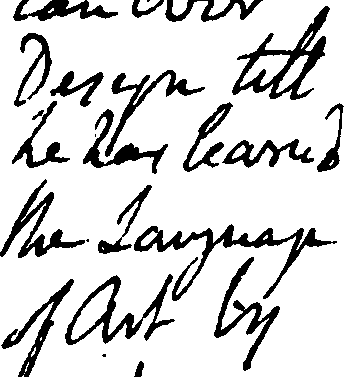 can ever
Design till
he has learned
the Language
of Art by